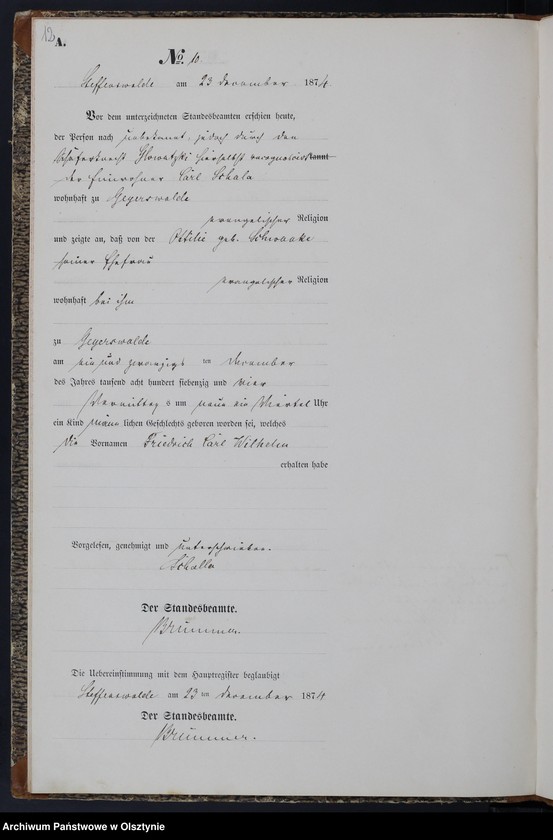 12
A.
No. 10
Steffenswalde am 23 December 1874
Vor dem unterzeichneten Standesbeamten erschien heute,
der Person nach unbekannt, jedoch durch den
Schäferknecht hierselbst kannt
der Einwohner Carl Schala
wohnhaft zu Geyerswalde
evangelischer Religion
und zeigte an, daß von der Ottilie geb.
seiner Ehefrau
evangelischer Religion
wohnhaft bei ihm
zu Geyerswalde
am ein und zwanzigs ten December
des Jahres tausend acht hundert siebenzig und vier
Vormittag s um neun ein Viertel Uhr
ein Kind männ lichen Geschlechts geboren worden sei, welches
die Vornamen Friedrich Carl Wilhelm
erhalten habe
Vorgelesen, genehmigt und unterschrieben.
Schalla
Der Standesbeamte.
Brümmer.
Die Uebereinstimmung mit dem Hauptregister beglaubigt
Steffenswalde am 23 ten December 1874
Der Standesbeamte.
Brümmer.
Archiwum Państwowe w Olsztynie